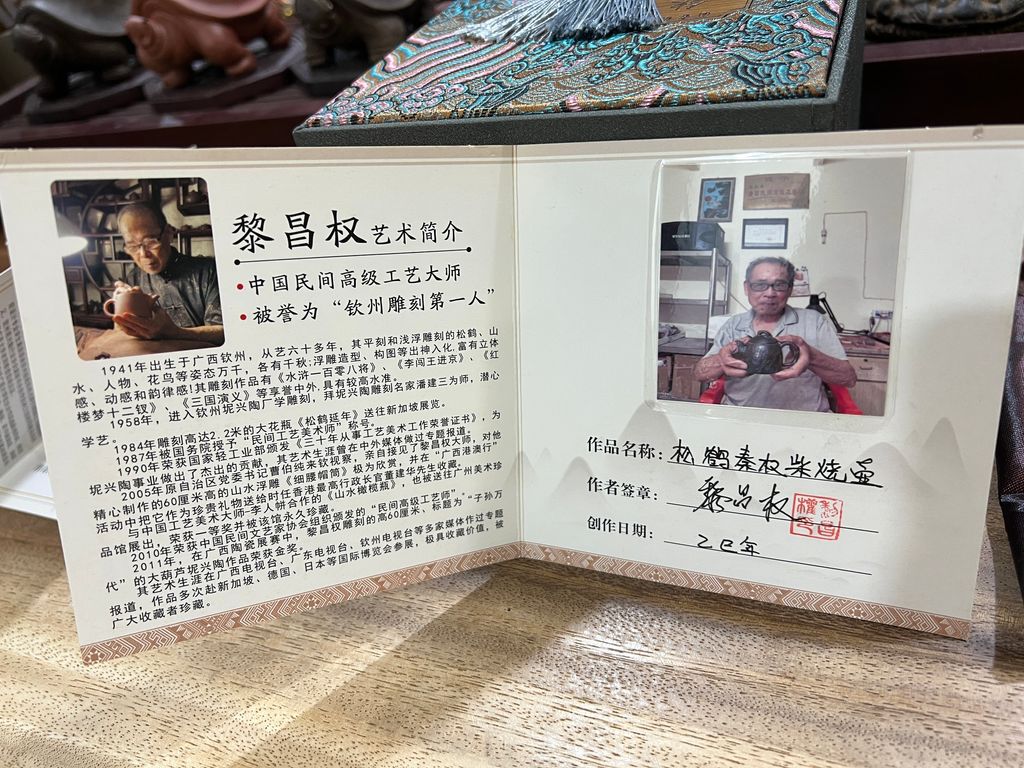 黎昌权 艺术简介
•中国民间高级工艺大师
•被誉为“钦州雕刻第一人”
1941年出生于广西钦州，从艺六十多年，其平刻和浅浮雕刻的松鹤、山
水、人物、花鸟等姿态万千，各有千秋;浮雕造型、构图等出神入化,富有立体
感、动感和韵律感!其雕刻作品有《水浒一百零八将》、《李闯王进京》、《红
楼梦十二钗》、《三国演义》等享誉中外,具有较高水准。
1958年，进入钦州坭兴陶厂学雕刻，拜坭兴陶雕刻名家潘建三为师，潜心
学艺。
1984年雕刻高达2.2米的大花瓶《松鹤延年》送往新加坡展览。
1987年被国务院授予“民间工艺美术师”称号。
1990年荣获国家轻工业部颁发《三十年从事工艺美术工作荣誉证书》，为
坭兴陶事业做出了杰出的贡献，其艺术生涯曾在中外媒体做过专题报道。
2005年原自治区党委书记曹伯纯来钦视察，亲自接见了黎昌权大师，对他
精心制作的60厘米高的山水浮雕《细腰帽筒》极为欣赏，并在“广西港澳行”
活动中把它作为珍贵礼物送给时任香港最高行政长官董建华先生收藏。
与中国工艺美术大师-李人帡合作的《山水橄榄瓶》，也被送往广州美术珍
品馆展出，荣获一等奖并被该馆永久珍藏。
2010年荣获中国民间文艺家协会组织颁发的“民间高级工艺师”。
2011年，在广西陶瓷展赛中，黎昌权雕刻的高60厘米、标题为“子孙万
代”的大葫芦坭兴陶作品荣获金奖。
其艺术生涯在广西电视台、广东电视台、钦州电视台等多家媒体作过专题
报道，作品多次赴新加坡、德国、日本等国际博览会参展，极具收藏价值，被
广大收藏者珍藏。
作品名称：松鹤秦权柴烧壶
作者签章：黎昌权
黎昌權
创作日期：乙巳年